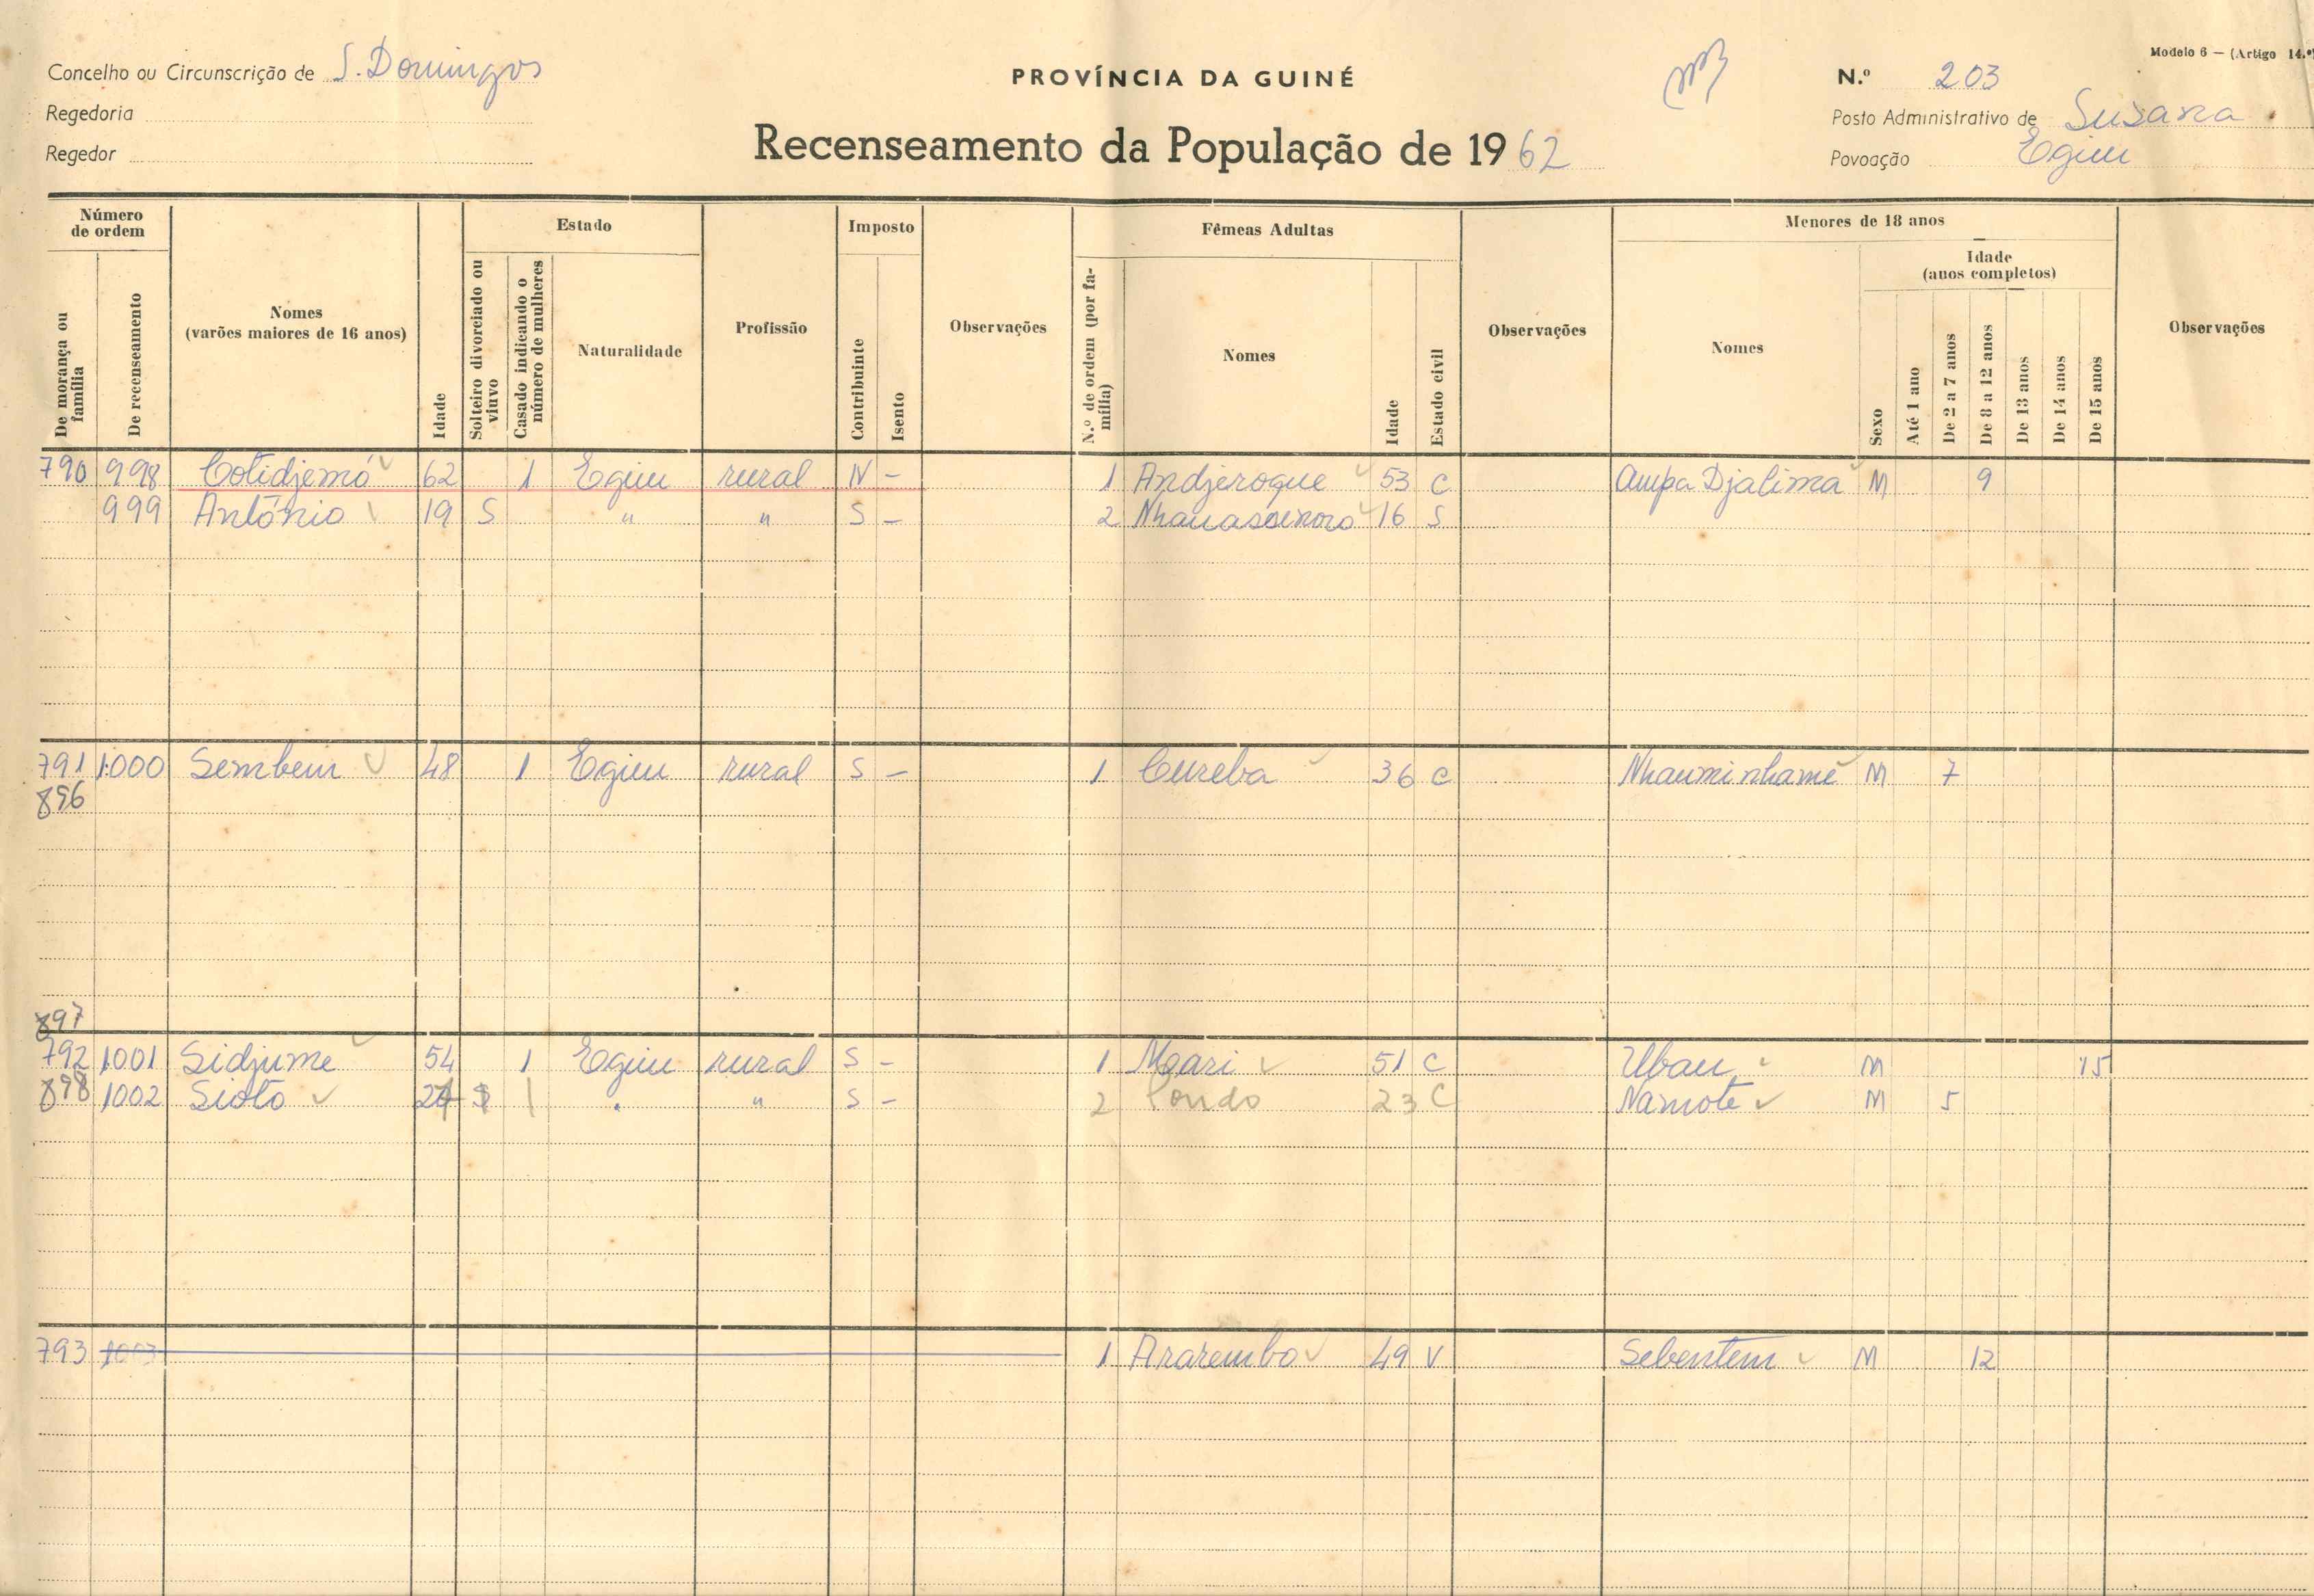 Modelo 6 — (Artigo 14.º
Concelho ou Circunscrição de S. Domingos
PROVÍNCIA DA GUINÉ
N.º 203
Regedoria
Posto Administrativo de Susana
Regedor
Recenseamento da População de 1962
Povoação Egim
Número de ordem
De morança ou família
De recenseamento
Nomes
(varões maiores de 16 anos)
Idade
Estado
Solteiro divorciado ou viuvo
Casado indicando o número de mulheres
Naturalidade
Profissão
Imposto
Contribuinte
Isento
Observações
Fêmeas Adultas
N.º de ordem (por família)
Nomes
Idade
Estado civil
Observações
Menores de 18 anos
Nomes
Sexo
Idade
(anos completos)
Até 1 ano
De 2 a 7 anos
De 8 a 12 anos
De 13 anos
De 14 anos
De 15 anos
Observações
790 998 Cotidjemó 62 1 Egim rural N – 1 Andjeroque 53 C Ampa Djalima M 9
999 António 19 S " " S – 2 16 S
791 1.000 Sembem 48 1 Egim rural S – 1 Cureba 36 C Nhauminhame M 7
896
897
792 1.001 Sidjume 54 1 Egim rural S – 1 Moari 51 C Ubau M 15
898 1002 Sioto S 1 " " S – 2 Londo 23 C Namote M 5
793 1003 1 Ararembo 49 V Sebentem M 12